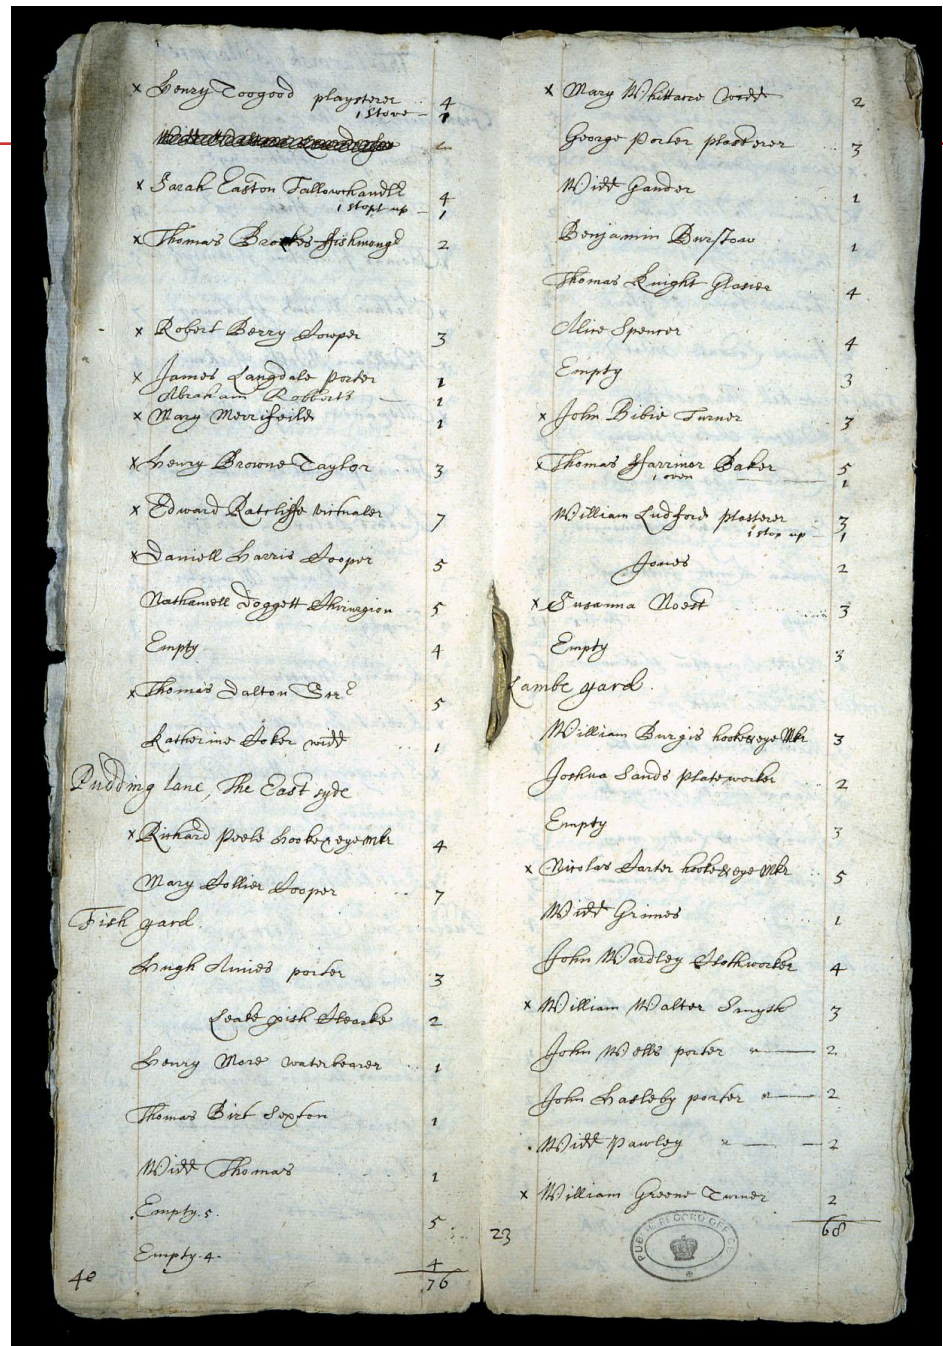 x Henry Toogood playsterer 4
1 stove – 1
x Sarah Easton Tallowchandlr 4
1 stopt up – 1
x Thomas Brookes fishmongr 2
x Robert Berry Cooper 3
x James Langdale Porter 1
Abraham Roberts 1
x Mary Merrifeild 1
x Henry Browne Taylor 3
x Edward Ratcliffe victualer 7
x Daniell Harris Cooper 5
Nathaniell Doggett Chirurgion 5
Empty 4
x Thomas Dalton 5
Katherine Coker widd 1
Pudding lane, The East syde
x Richard Peele hooke & eye Mkr 4
Mary Collier Cooper 7
Fish yard
Hugh Amies porter 3
pish Clearke 2
Henry More waterbearer 1
Thomas Birt Sexton 1
Widd Thomas 1
Empty .5. 5
Empty .4. 4
40 76
x Mary Whittacre widd 2
George Porter plasterer 3
Widd Gander 1
Benjamin Burstow 1
Thomas Knight Glasier 4
Alice Spencer 4
Empty 3
x John Bibie Turner 3
x Thomas Farriner Baker 5
1 oven 1
William Ludford plasterer 3
1 stop up – 1
Jones 2
x Susanna Noest 3
Empty 3
Lambe yard
William Burgis hooke & eye Mkr 3
Joshua Sands Plateworker 2
Empty 3
x Nicolas Carter hooke & eye Mkr 5
Widd Grimes 1
John Wardley Clothworker 4
x William Walter Smyth 3
John Wells porter " — 2
John Hasleby porter " — 2
Widd Pawley " — 2
x William Greene Turner 2
23 68
PUBLIC RECORD OFFICE